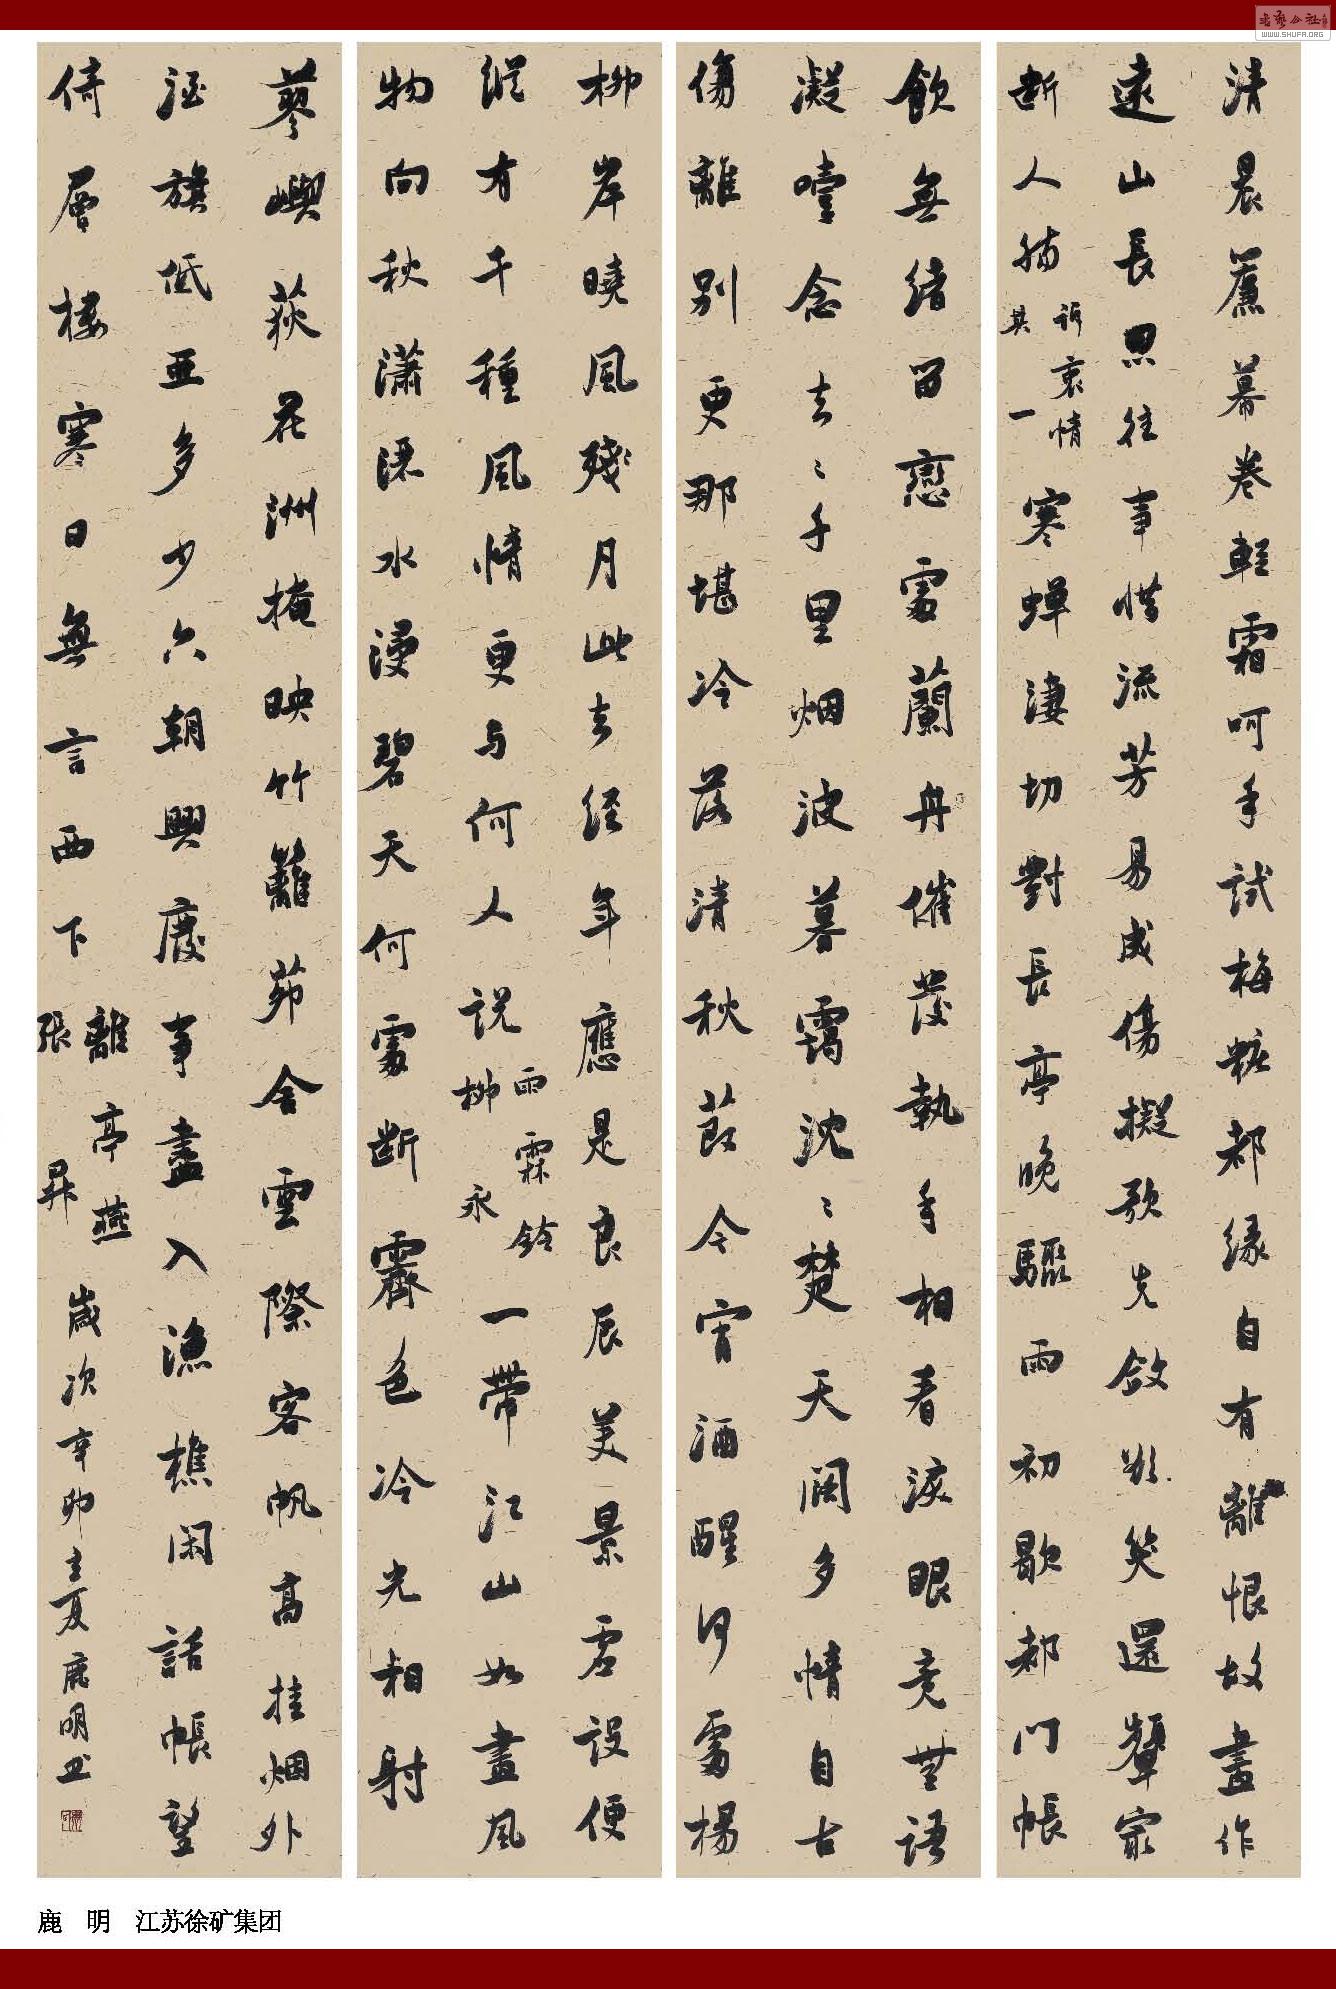 清晨簾幕卷輕霜呵手試梅粧都緣自有離恨故畫作
遠山長思往事惜流芳易成傷擬歌先斂欲笑還顰最
断人腸
訴衷情
其一
寒蟬淒切對長亭晚驟雨初歇都門帳
飲無緒留戀處蘭舟催發執手相看淚眼竟無語
凝噎念去〻千里烟波暮靄沈〻楚天闊多情自古
傷離別更那堪冷落清秋節今宵酒醒何處楊
柳岸曉風殘月此去經年應是良辰美景虛設便
縱有千種風情更与何人説
雨霖鈴
柳永
一帶江山如畫風
物向秋瀟洒水浸碧天何處断霽色冷光相射
蓼嶼荻花洲掩映竹籬茆舍雲際客帆高挂烟外
酒旗低亞多少六朝興廢事盡入漁樵閑話悵望
倚層樓寒日無言西下
離亭燕
張昇
歲次辛卯立夏鹿明书
鹿 明 江苏徐矿集团
书艺公社
WWW.SHUFA.ORG